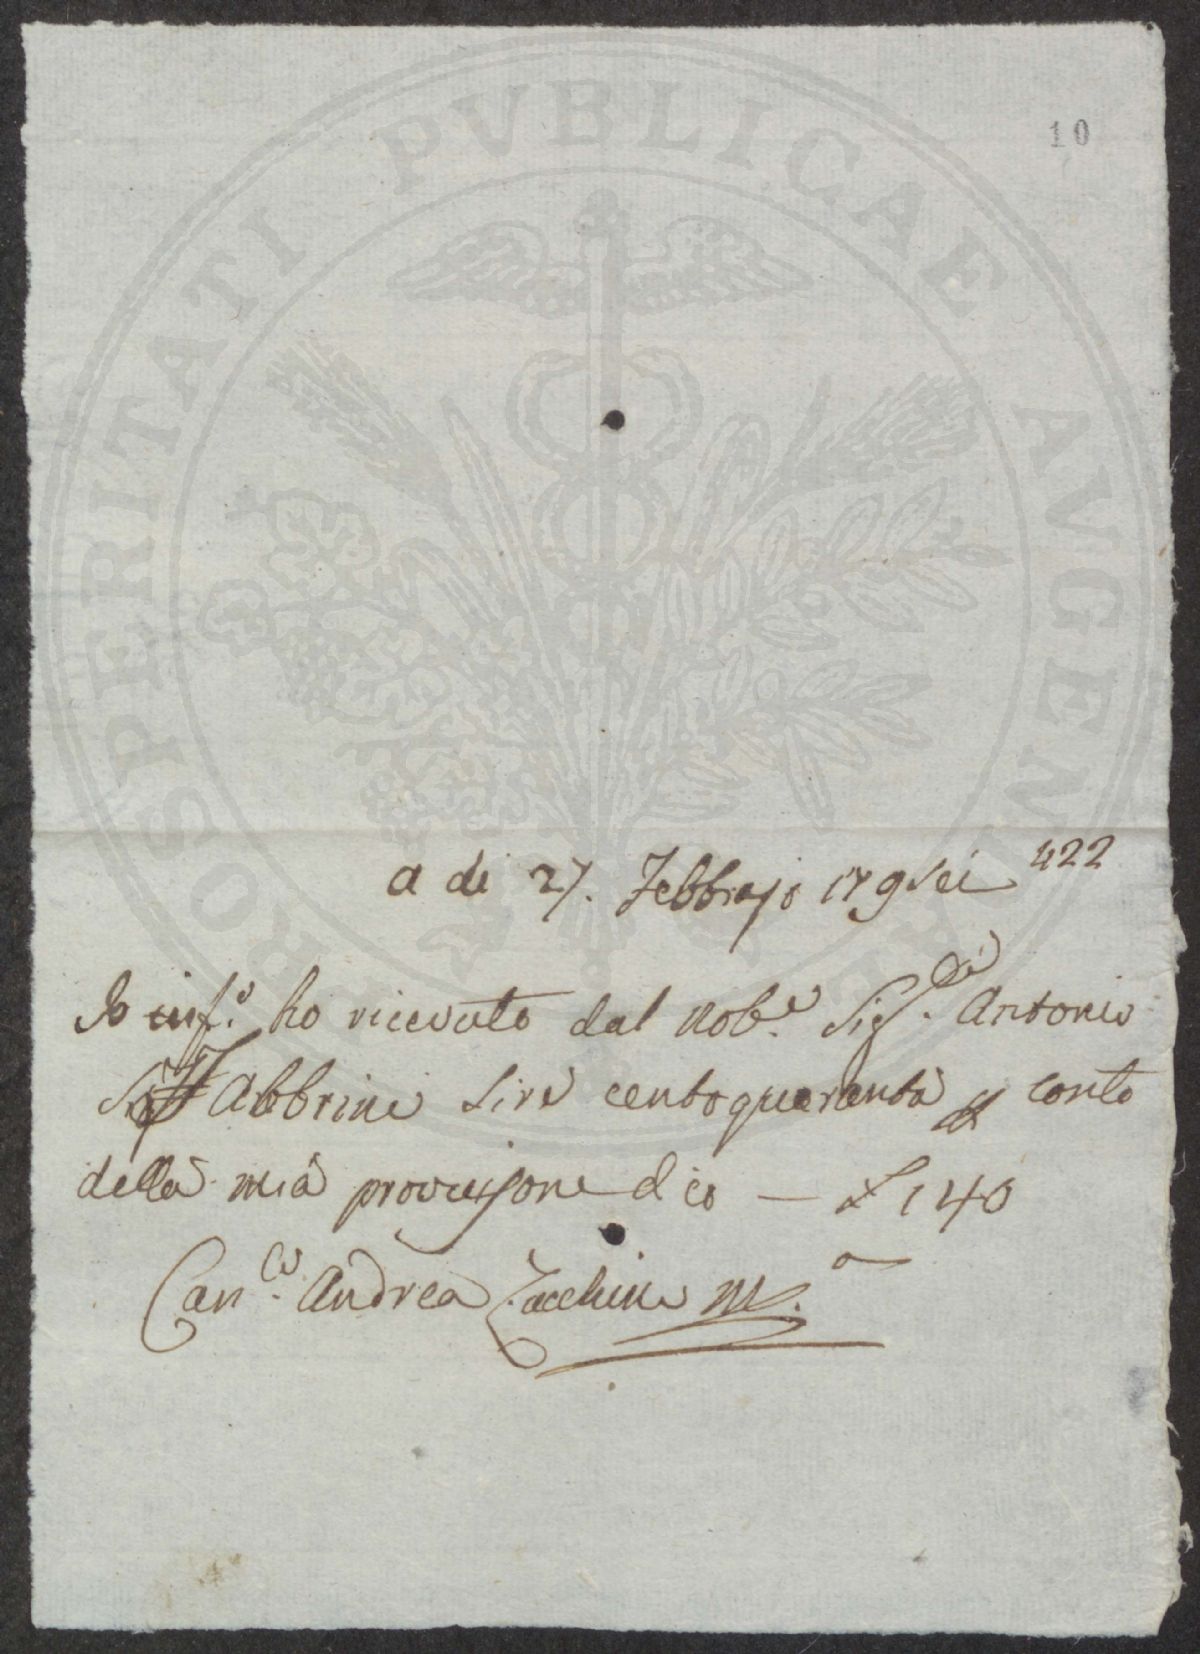 PROSPERITATI PVBLICAE AVGENDAE
10
a di 27. Febbrajo 179sei 422
Io inf.o ho ricevuto dal Nob.e Sig.re Antonio
Fabbrini Lire centoquaranta p conto
della mia provvisione dico — £ 140
Can.co Andrea Zacchini M.o